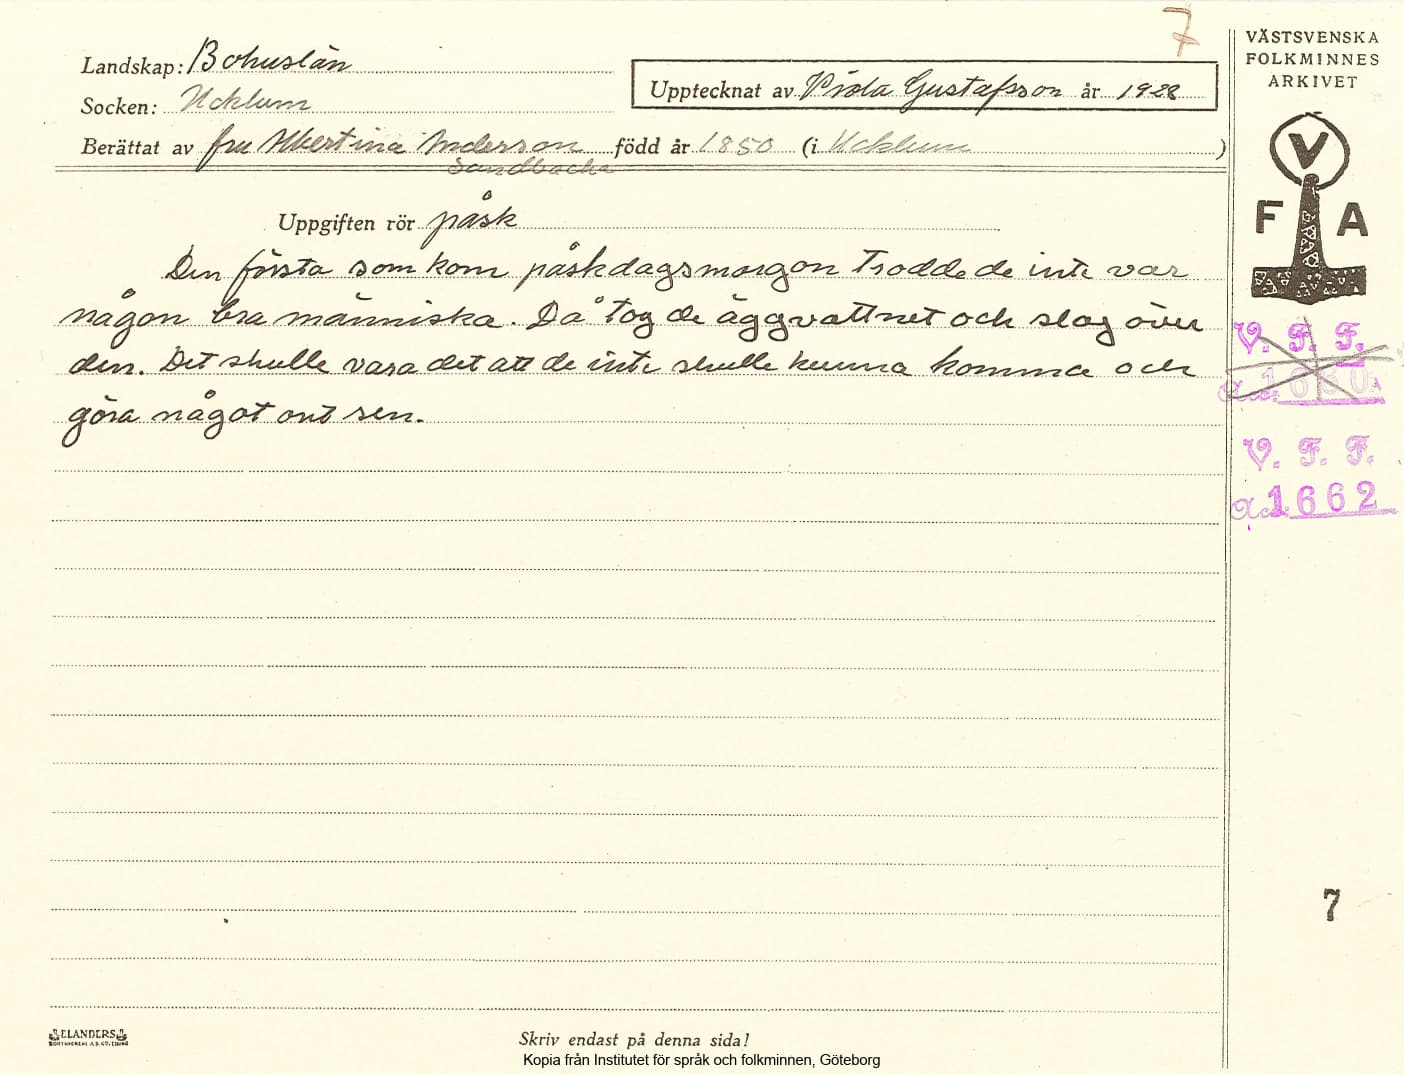 7
VÄSTSVENSKA
FOLKMINNES
ARKIVET
Landskap: Bohuslän
Socken: Ucklum
Upptecknat av Viola Gustafsson år 1928
Berättat av fru Albertina Anderson född år 1850 (i Ucklum)
Sandbacka
V
F A
Uppgiften rör påsk
Den första som kom påskdagsmorgon trodde de inte var
någon bra människa. Då tog de äggvattnet och slog över
den. Det skulle vara det att de inte skulle kunna komma och
göra något ont sen.
V. F. F.
V. F. F.
Acc. 1662
7
ELANDERS
Skriv endast på denna sida!
Kopia från Institutet för språk och folkminnen, Göteborg